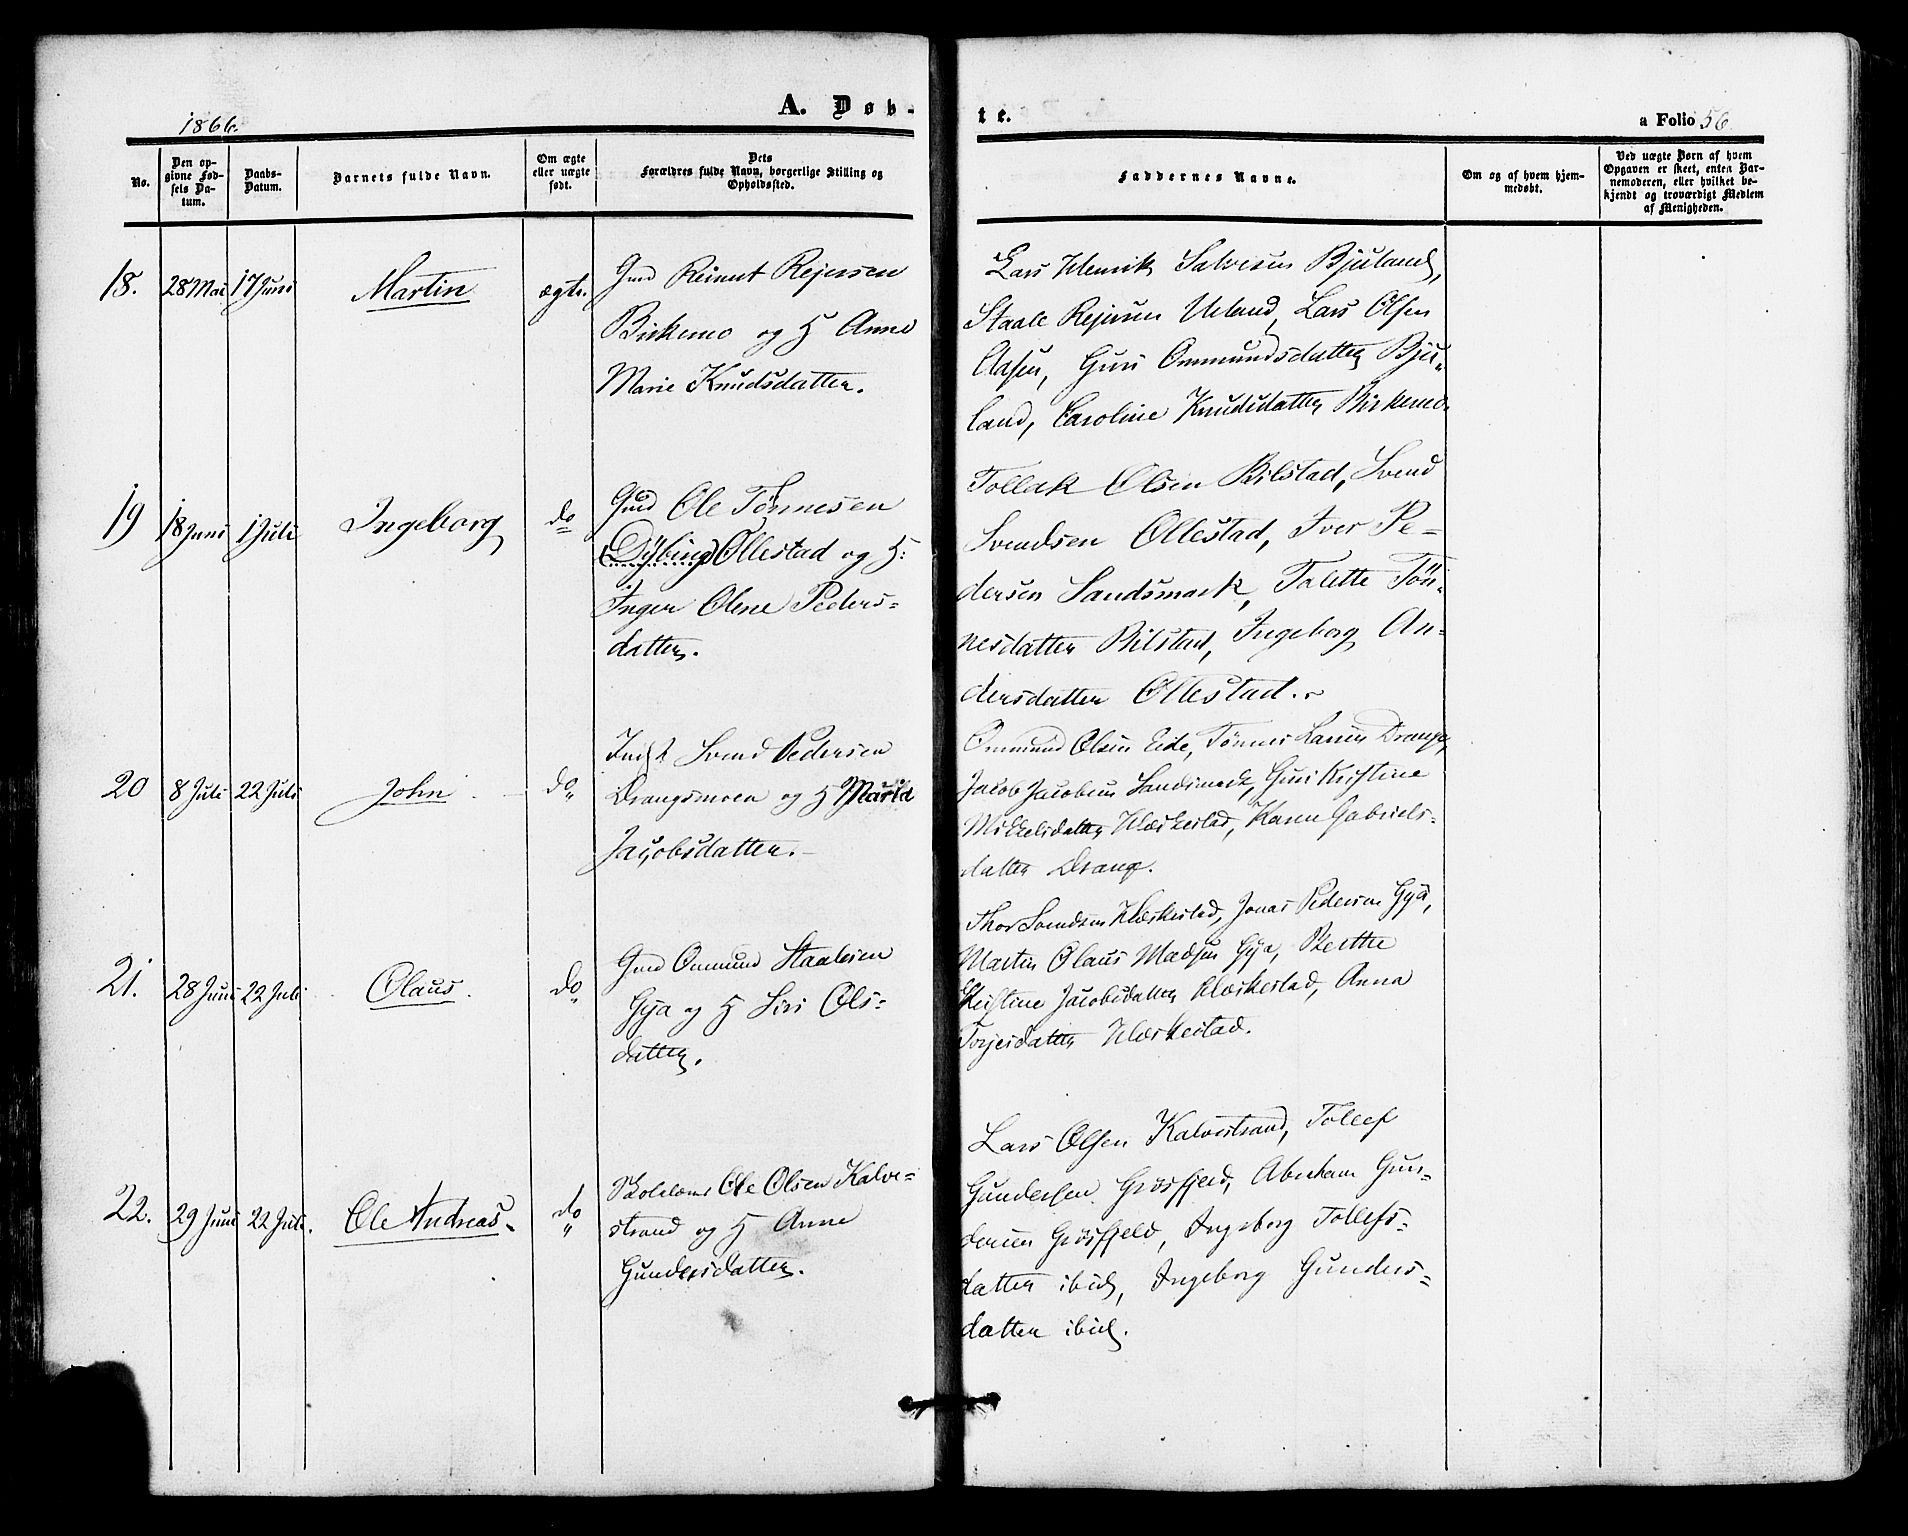 1866.
A. Døb-
te.
a Folio 56
No.
Den op-
givne Fød-
sels Da-
tum.
Daabs-
Datum.
Barnets fulde Navn.
Om ægte
eller uægte
født.
Dets
Forældres fulde Navn, borgerlige Stilling og
Opholdssted.
Faddernes Navne.
Om og af hvem hjem-
medøbt.
Ved uægte Børn af hvem
Opgaven er skeet, enten Bar-
nemoderen, eller hvilket be-
kjendt og troværdigt Medlem
af Menigheden.
18.
28 Mai
17 Juni
Martin
ægte.
Gmd Reinert Rejersen
Birkemo og H Anne
Marie Knudsdatter.
Lars Henrik Salvesen Bjuland,
Staale Rejersen Ueland, Lars Olsen
Aasen, Guri Ommundsdatter Bju-
land, Caroline Knudsdatter Birkemo
19
18 Juni
1 Juli
Ingeborg
do
Gmd Ole Tønnesen
(Dybing) Ollestad og H:
Inger Olene Peders-
datter.
Tollak Olsen Bilstad, Svend
Svendsen Ollestad, Iver Pe-
dersen Sandsmark, Talette Tøn-
nesdatter Bilstad, Ingeborg An-
dersdatter Ollestad.
20
8 Juli
22 Juli
John
do
Inds Svend Pedersen
Drangsmoen og H Maria
Jacobsdatter.
Ommund Olsen Eide, Tønnes Larsen Drange,
Jacob Jacobsen Sandsmark, Guri Kristine
Mikkelsdatter Hæskestad, Karen Gabriels-
datter Drange.
21.
28 Juni
22 Juli
Olaus
do
Gmd Ommund Staalesen
Gya og H Siri Ols-
datter.
Thor Svendsen Hæskestad, Jonas Pedersen Gya,
Martin Olaus Madsen Gya, Berthe
Kristine Jacobsdatter Hæskestad, Anna
Torjesdatter Hæskestad.
22.
29 Juni
22 Juli.
Ole Andreas
do
Ole Olsen Kalve-
strand og H Anne
Gundersdatter.
Lars Olsen Kalvestrand, Tollef
Gundersen Grøsfjeld, Abraham Gun-
dersen Grøsfjeld, Ingeborg Tollefs-
datter ibid, Ingeborg Gunders-
datter ibid.